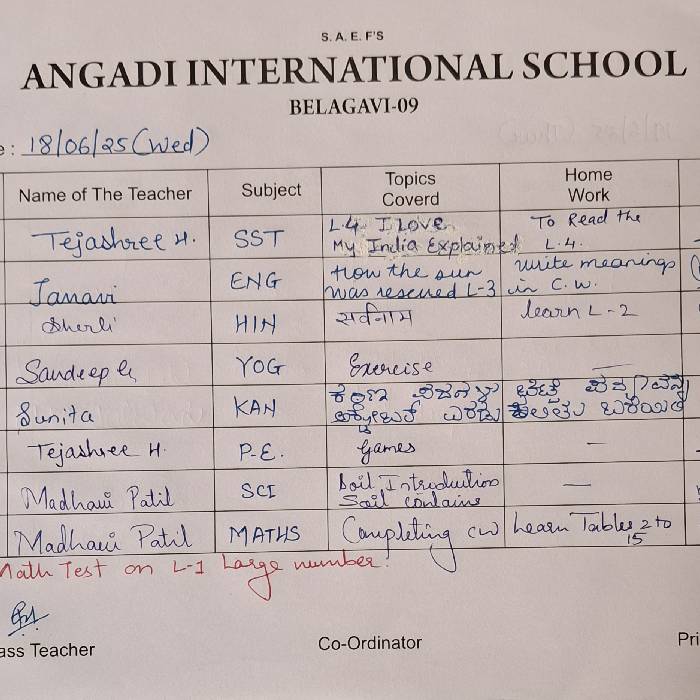 S. A. E. F'S
ANGADI INTERNATIONAL SCHOOL
BELAGAVI-09
e : 18/06/25 (Wed)
Name of The Teacher Subject Topics Coverd Home Work
Tejashree H. SST L-4 I Love My India Explained To Read the L.4.
Janavi ENG How the sun was rescued L-3 write meanings in C.W.
Sherli HIN सर्वनाम learn L-2
Sandeep YOG Exercise —
Sunita KAN
Tejashree H. P.E. Games —
Madhavi Patil SCI Soil Introduction Soil contains —
Madhavi Patil MATHS Completing cw Learn Tables 2 to 15
Math Test on L-1 Large number.
ass Teacher Co-Ordinator Pri